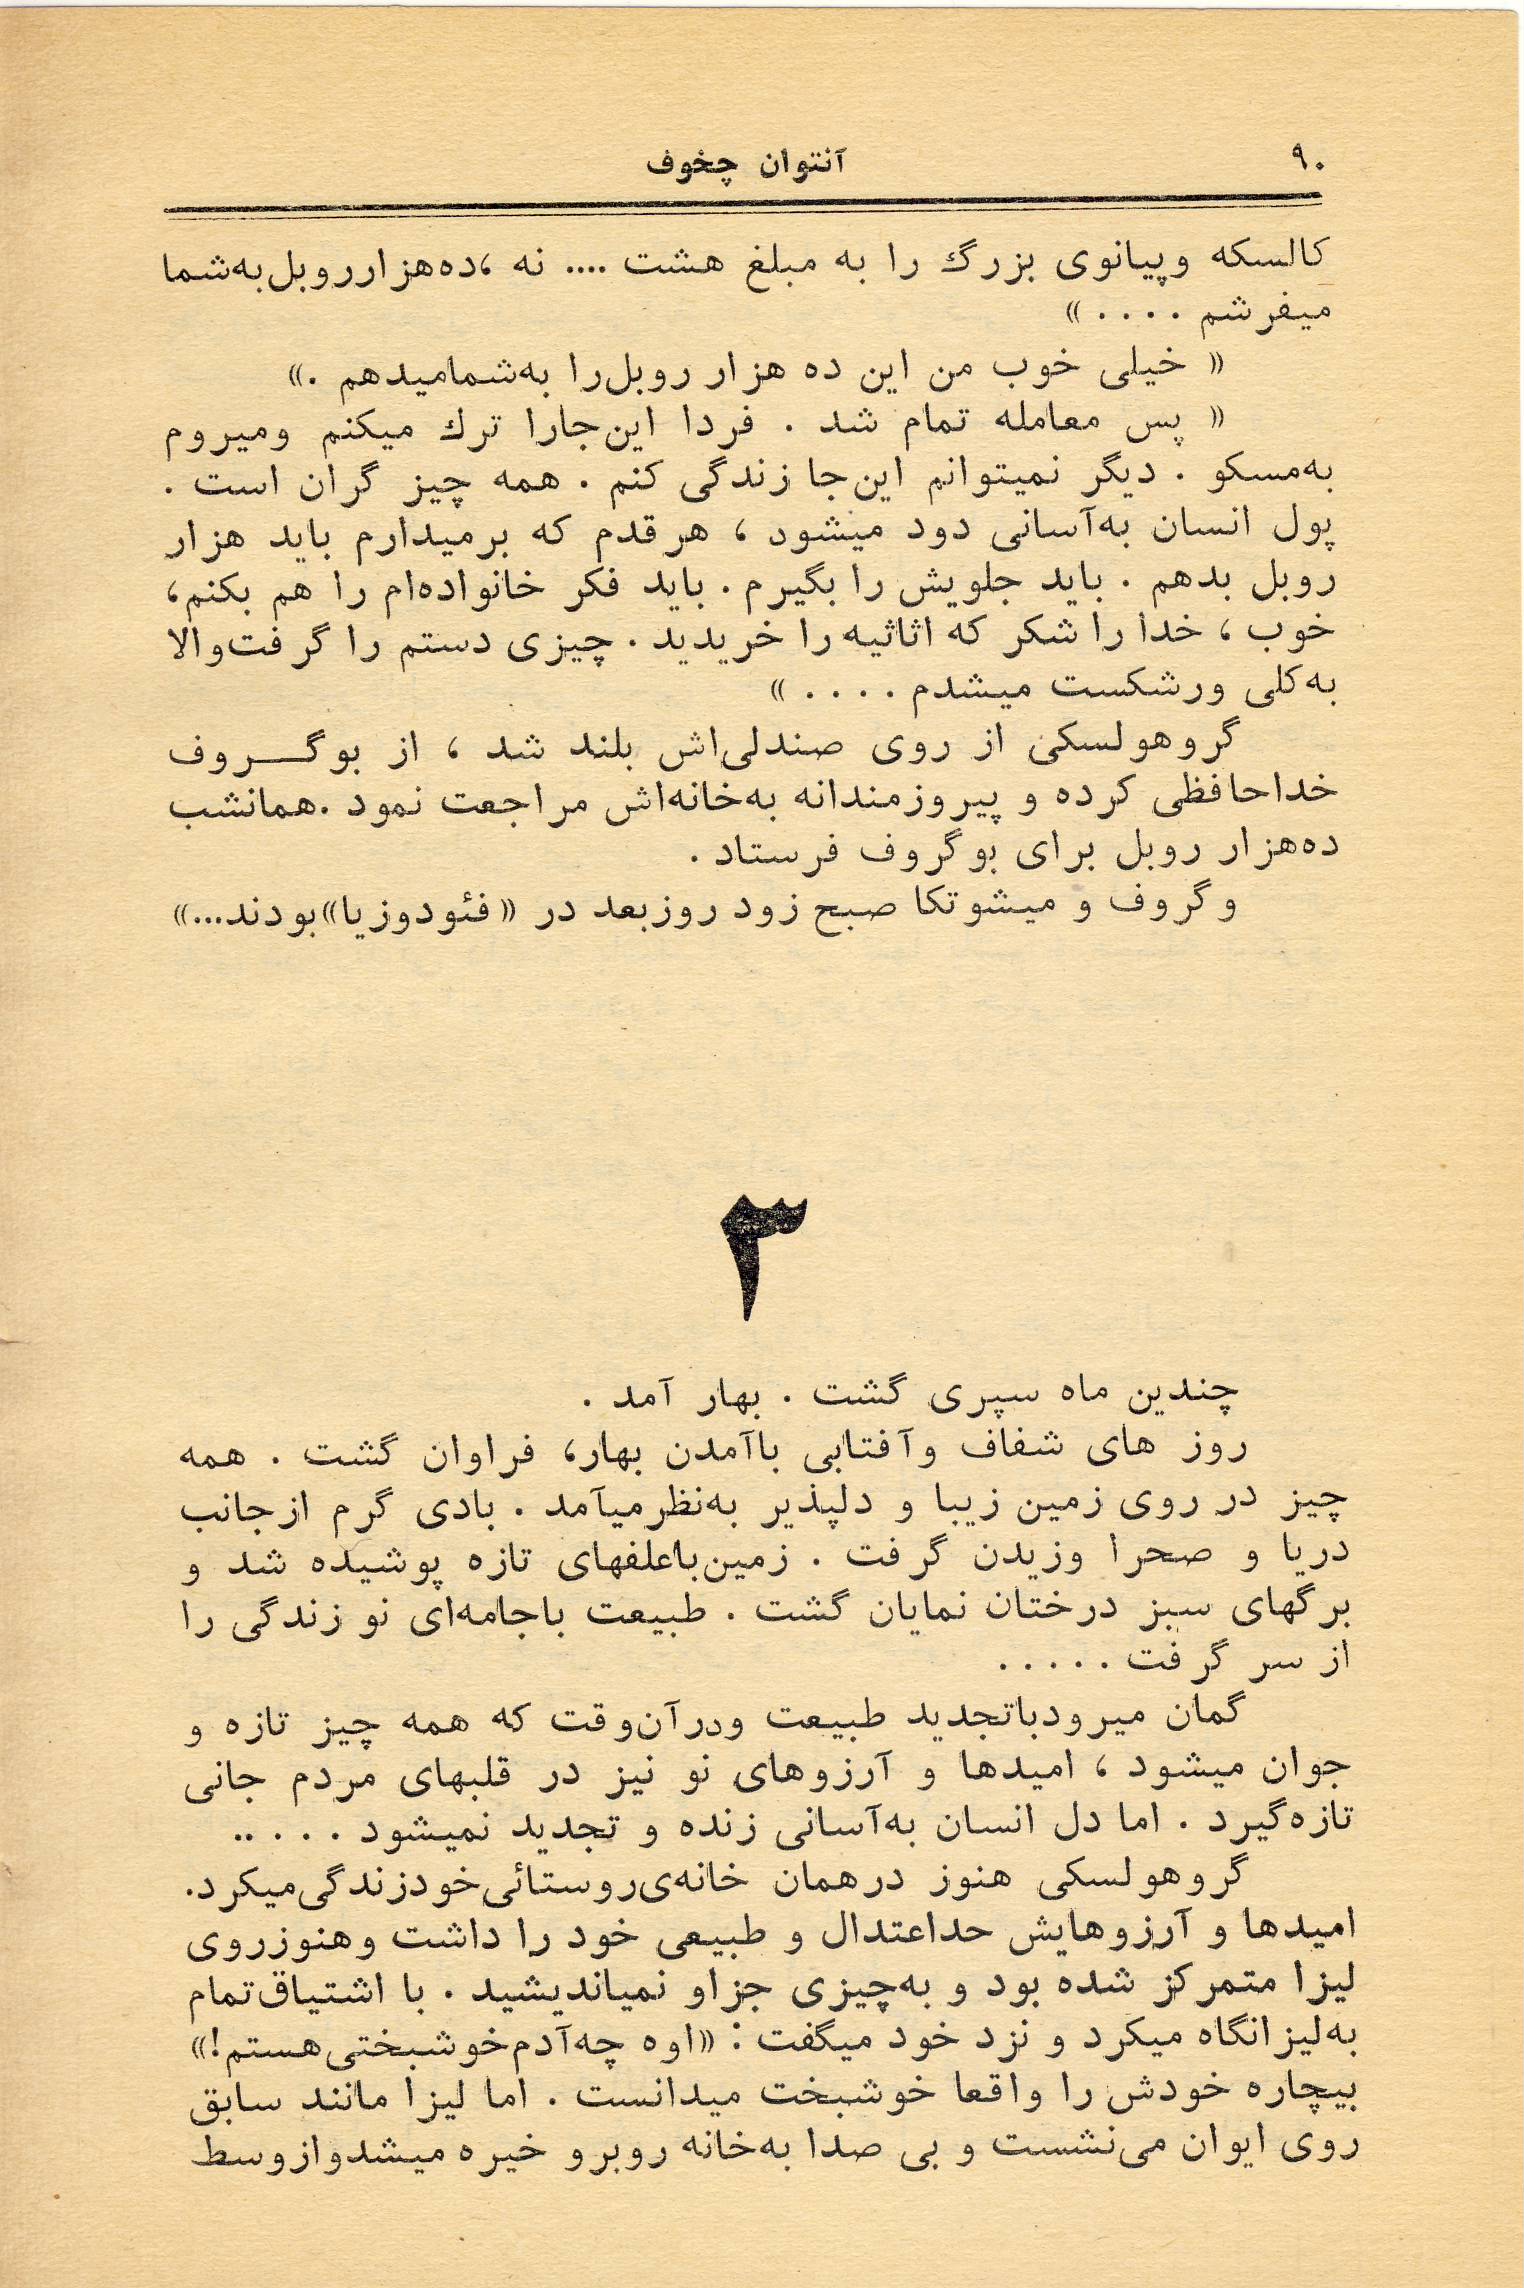 ۹۰
آنتوان چخوف
کالسکه وپیانوی بزرگ را به مبلغ هشت .... نه ،ده‌هزارروبل‌به‌شما
میفرشم . . . . »
« خیلی خوب من این ده هزار روبل‌را به‌شمامیدهم .»
« پس معامله تمام شد . فردا این‌جارا ترك میکنم ومیروم
به‌مسکو . دیگر نمیتوانم این‌جا زندگی کنم . همه چیز گران است .
پول انسان به‌آسانی دود میشود ، هرقدم که برمیدارم باید هزار
روبل بدهم . باید جلویش را بگیرم . باید فکر خانواده‌ام را هم بکنم،
خوب ، خدا را شکر که اثاثیه را خریدید . چیزی دستم را گرفت‌والا
به‌کلی ورشکست میشدم . . . . »
گروهولسکی از روی صندلی‌اش بلند شد ، از بوگــروف
خداحافظی کرده و پیروزمندانه به‌خانه‌اش مراجعت نمود .همانشب
ده‌هزار روبل برای بوگروف فرستاد .
وگروف و میشوتکا صبح زود روزبعد در « فئودوزیا»بودند...»
۳
چندین ماه سپری گشت . بهار آمد .
روز های شفاف وآفتابی باآمدن بهار، فراوان گشت . همه
چیز در روی زمین زیبا و دلپذیر به‌نظرمیآمد . بادی گرم ازجانب
دریا و صحرا وزیدن گرفت . زمین‌باعلفهای تازه پوشیده شد و
برگهای سبز درختان نمایان گشت . طبیعت باجامه‌ای نو زندگی را
از سر گرفت . . . . .
گمان میرودباتجدید طبیعت ودرآن‌وقت که همه چیز تازه و
جوان میشود ، امیدها و آرزوهای نو نیز در قلبهای مردم جانی
تازه‌گیرد . اما دل انسان به‌آسانی زنده و تجدید نمیشود . . . ..
گروهولسکی هنوز درهمان خانه‌ی‌روستائی‌خودزندگی‌میکرد.
امیدها و آرزوهایش حداعتدال و طبیعی خود را داشت وهنوزروی
لیزا متمرکز شده بود و به‌چیزی جزاو نمیاندیشید . با اشتیاق‌تمام
به‌لیزانگاه میکرد و نزد خود میگفت : «اوه چه‌آدم‌خوشبختی‌هستم!»
بیچاره خودش را واقعا خوشبخت میدانست . اما لیزا مانند سابق
روی ایوان می‌نشست و بی صدا به‌خانه روبرو خیره میشدوازوسط